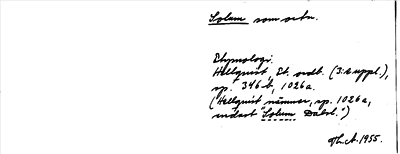 Solum som ortn.
Etymologi.
Hellquist, Et. ordb. (3:e uppl.),
sp. 346 b, 1026 a.
(Hellquist nämner, sp. 1026 a,
endast "Solum Dalsl.")
Th.A. 1955.